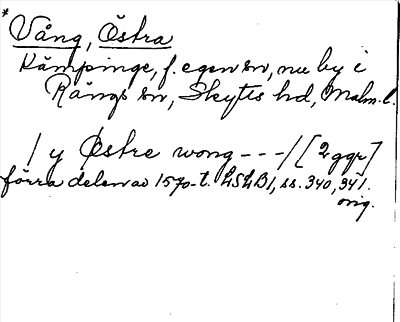 * Vång, Östra
Kämpinge, f. egen sn, nu by i
Rängs sn, Skytts hd, Malm. l.
/ y Østre wong - - - / [2 ggr]
förra delen av 1570-t. LSLB1, ss. 340, 341.
orig.